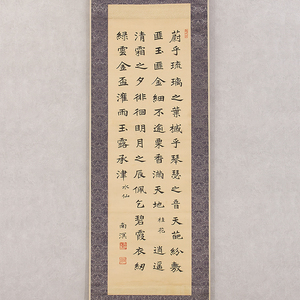 蔚乎琉璃之葉槭乎琴瑟之音天葩紛敷
匪玉匪金細不逾粟香滿天地 桂花 逍遥
清霜之夕徘徊明月之辰佩乞碧霞衣紉
緑雲金盃灌而玉露承津 水仙
南溟